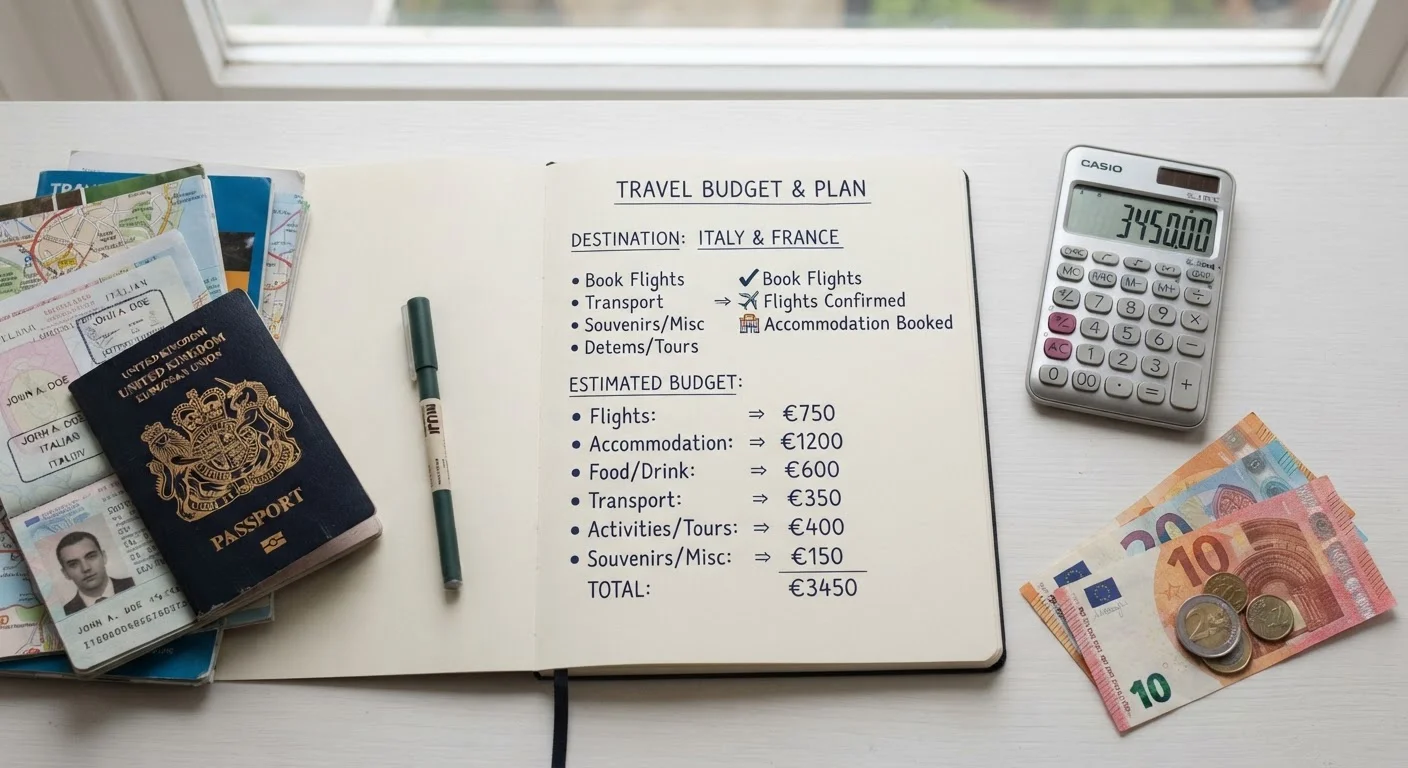 TRAVEL BUDGET & PLAN
DESTINATION: ITALY & FRANCE
• Book Flights
• Transport ⇒
• Souvenirs/Misc
• Detems/Tours
✔ Book Flights
✈ Flights Confirmed
🏨 Accommodation Booked
ESTIMATED BUDGET:
• Flights: ⇒ €750
• Accommodation: ⇒ €1200
• Food/Drink: ⇒ €600
• Transport: ⇒ €350
• Activities/Tours: ⇒ €400
• Souvenirs/Misc: ⇒ €150
TOTAL: €3450
TRAV
ITALIAN
JOHN A. DOE
ITALIAN
UNITED KINGDOM
PASSPORT
JOHN A. DOE
MUJI
CASIO
3450.00
MC
M+
7 8 9 ×
4 5 6 −
AC 1 2 3 +
0 00 · =
20
10
10
2